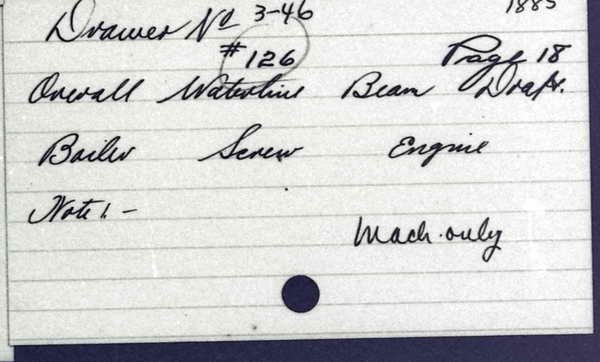 Drawer No 3-46 1885
#126 Page 18
Overall Waterline Beam Draft.
Boiler Screw Engine
Note 1. -
Mach. only